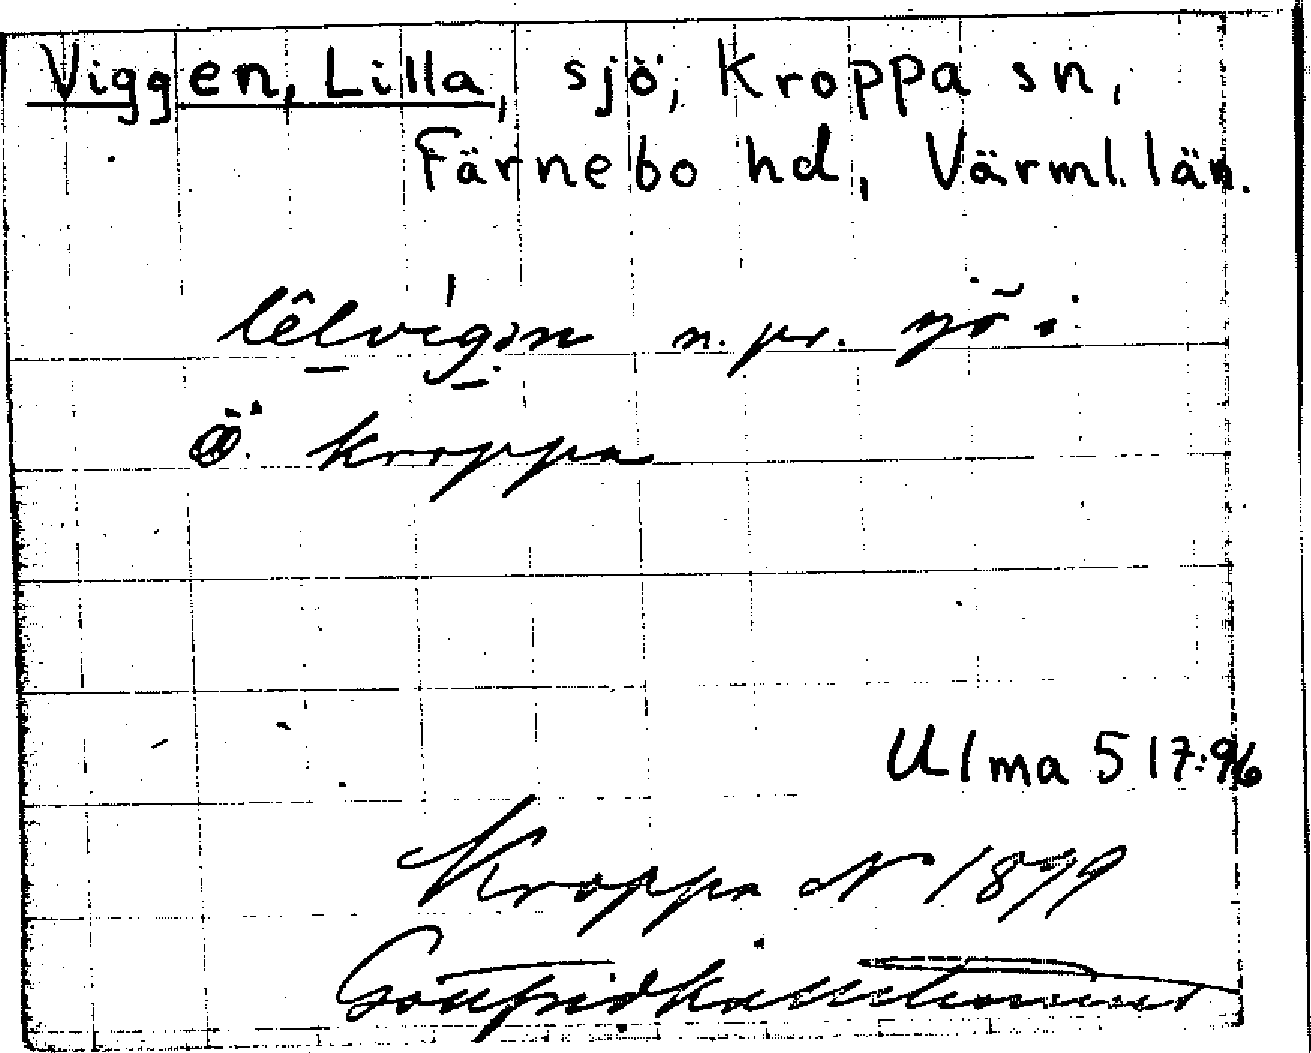 Viggen, Lilla, sjö, Kroppa sn,
Färnebo hd, Värml. län.
lêlvigən n. pr. sjö i
Ö. Kroppa
Ulma 517:96
Kroppa N 1899
Gottfrid Kallstenius